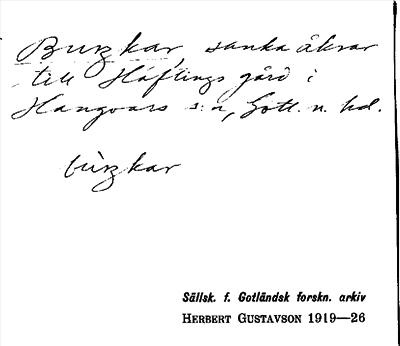 Burzkar, sanka åkrar
till Häftings gård i
Hangvars s:n, Gotl. n. hd.
bùrzkar
Sällsk. f. Gotländsk forskn. arkiv
HERBERT GUSTAVSON 1919—26